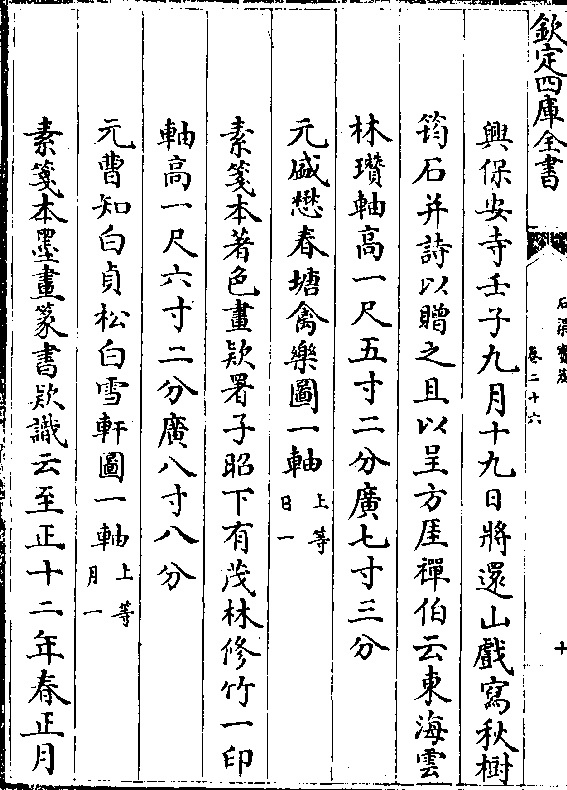 欽定四庫全書
石渠寶笈
卷二十六
十
興保安寺壬子九月十九日將還山戲寫秋樹
筠石并詩以贈之且以呈方厓禪伯云東海雲
林瓚軸高一尺五寸二分廣七寸三分
元盛懋春塘禽樂圖一軸上等
日一
素箋本著色畫欵署子昭下有茂林修竹一印
軸高一尺六寸二分廣八寸八分
元曹知白貞松白雪軒圖一軸上等
月一
素箋本墨畫篆書欵識云至正十二年春正月